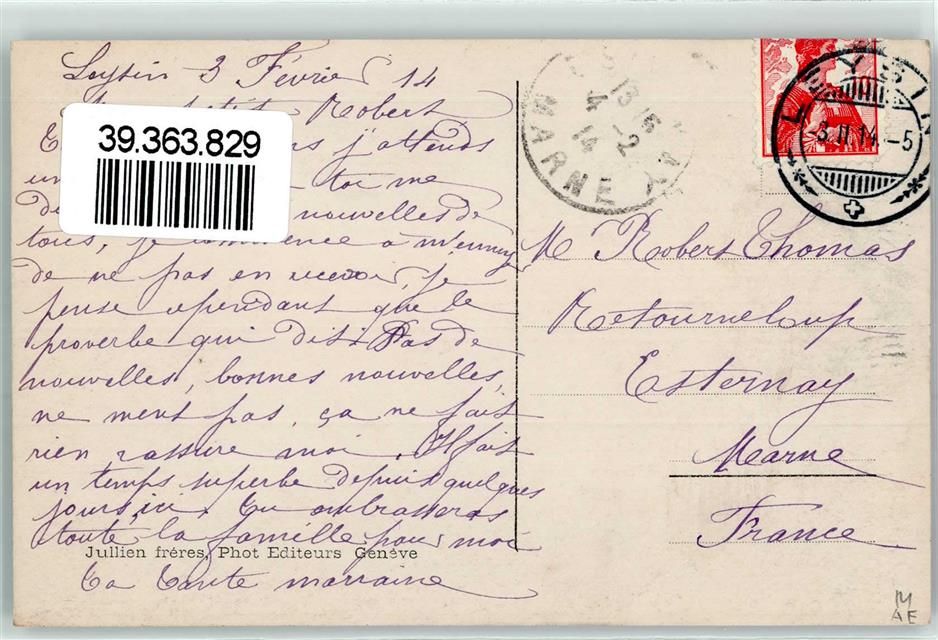 Leysin 3 Février 14
petit Robert
j'attends
un toi me
nouvelles de
tous, je commence à m'ennuyer
de ne pas en recevoir, je
pense cependant que le
proverbe qui dit: Pas de
nouvelles, bonnes nouvelles,
ne ment pas, ça ne fait
rien rassure moi. Il fait
un temps superbe depuis quelques
jours ici. Tu embrasseras
toute la famille pour moi
Jullien fréres, Phot Editeurs Genève
Ta Tante marraine
39.363.829
13 15
4 -2
14
MARNE
LEYSIN
3.II.14.-5
M Robert Thomas
Retourneloup
Esternay
Marne
France
M
AE